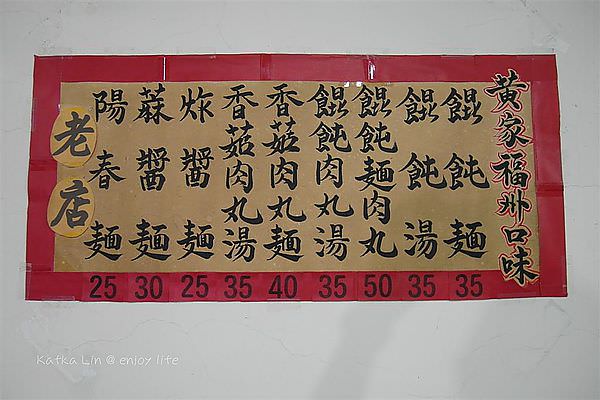 黃家福州口味
餛飩麵 35
餛飩湯 35
餛飩麵肉丸 50
餛飩肉丸湯 35
香菇肉丸麵 40
香菇肉丸湯 35
炸醬麵 25
蔴醬麵 30
陽春麵 25
老店
Katka Lin @ enjoy life